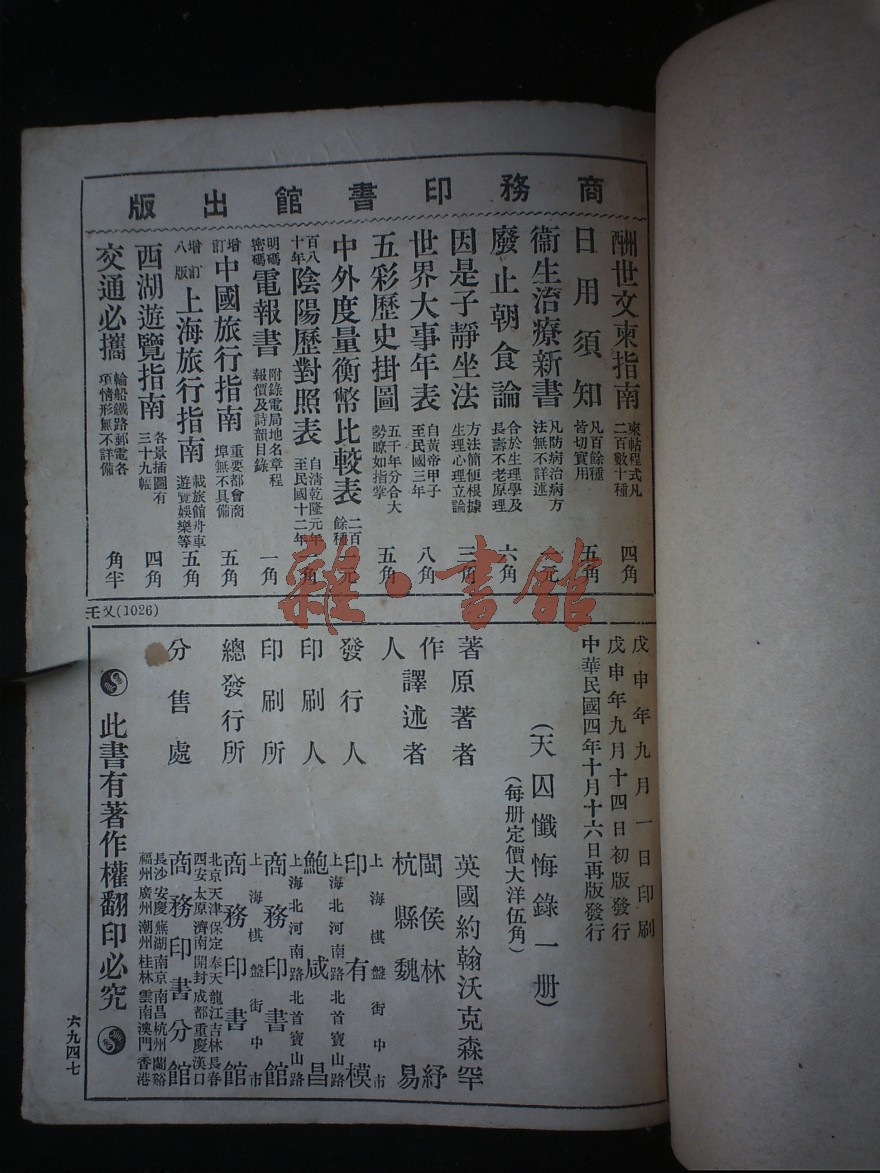 商務印書館出版
酬世文柬指南 柬帖程式凡二百數十種 四角
日用須知 凡百餘種皆切實用 五角
衞生治療新書 凡防病治病方法無不詳述 一元
廢止朝食論 合於生理學及長壽不老原理 六角
因是子靜坐法 方法簡便根據生理心理立論 三角
世界大事年表 自黃帝甲子至民國三年 八角
五彩歷史掛圖 五千年分合大勢瞭如指掌 五角
中外度量衡幣比較表 二百餘種 一元
百八十年陰陽歷對照表 自清乾隆元年至民國十二年 一角
明碼密碼電報書 附錄電局地名章程報價及詩韻目錄 一角
增訂中國旅行指南 重要都會商埠無不具備 五角
增訂八版上海旅行指南 載旅館舟車遊覽娛樂等 五角
西湖遊覽指南 各景插圖有三十九幅 四角
交通必攜 輪船鐵路郵電各項情形無不詳備 角半
(1026)
戊申年九月一日印刷
戊申年九月十四日初版發行
中華民國四年十月十六日再版發行
(天囚懺悔錄一册)
(每册定價大洋伍角)
著作人
原著者 英國約翰沃克森罕
譯述者 閩侯林紓
杭縣魏易
發行人 印有模
上海棋盤街中市
印刷人 鮑咸昌
上海北河南路北首寶山路
印刷所 商務印書館
上海北河南路北首寶山路
總發行所 商務印書館
上海棋盤街中市
分售處 商務印書分館
北京天津保定奉天龍江吉林長春
西安太原濟南開封成都重慶漢口
長沙安慶蕪湖南京南昌杭州蘭谿
福州廣州潮州桂林雲南澳門香港
此書有著作權翻印必究
六九四七
雜·書館